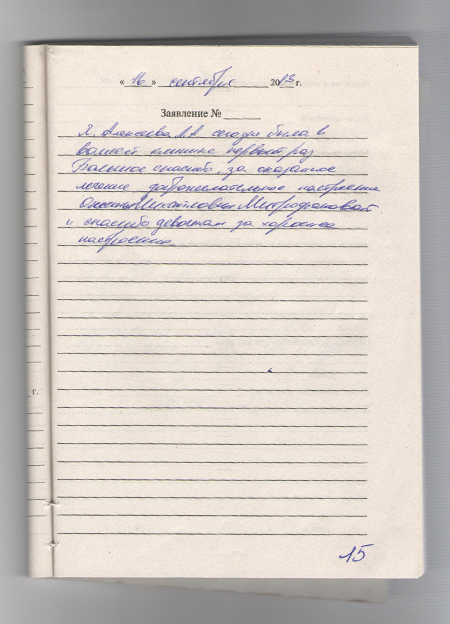 « 16 » сентября 2013 г.
Заявление №
Я, Алексеева Л.А сегодня была в
вашей клинике первый раз
Большое спасибо, за оказанное
лечение доброжелательное настроение
Михайловне Митрофановой
и спасибо девочкам за хорошее
настроение
г.
15